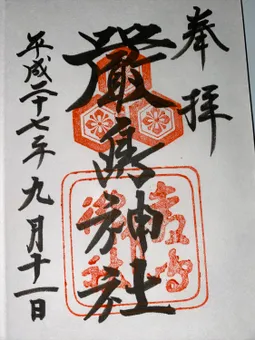 奉拝
厳島神社
平成二十七年九月十一日